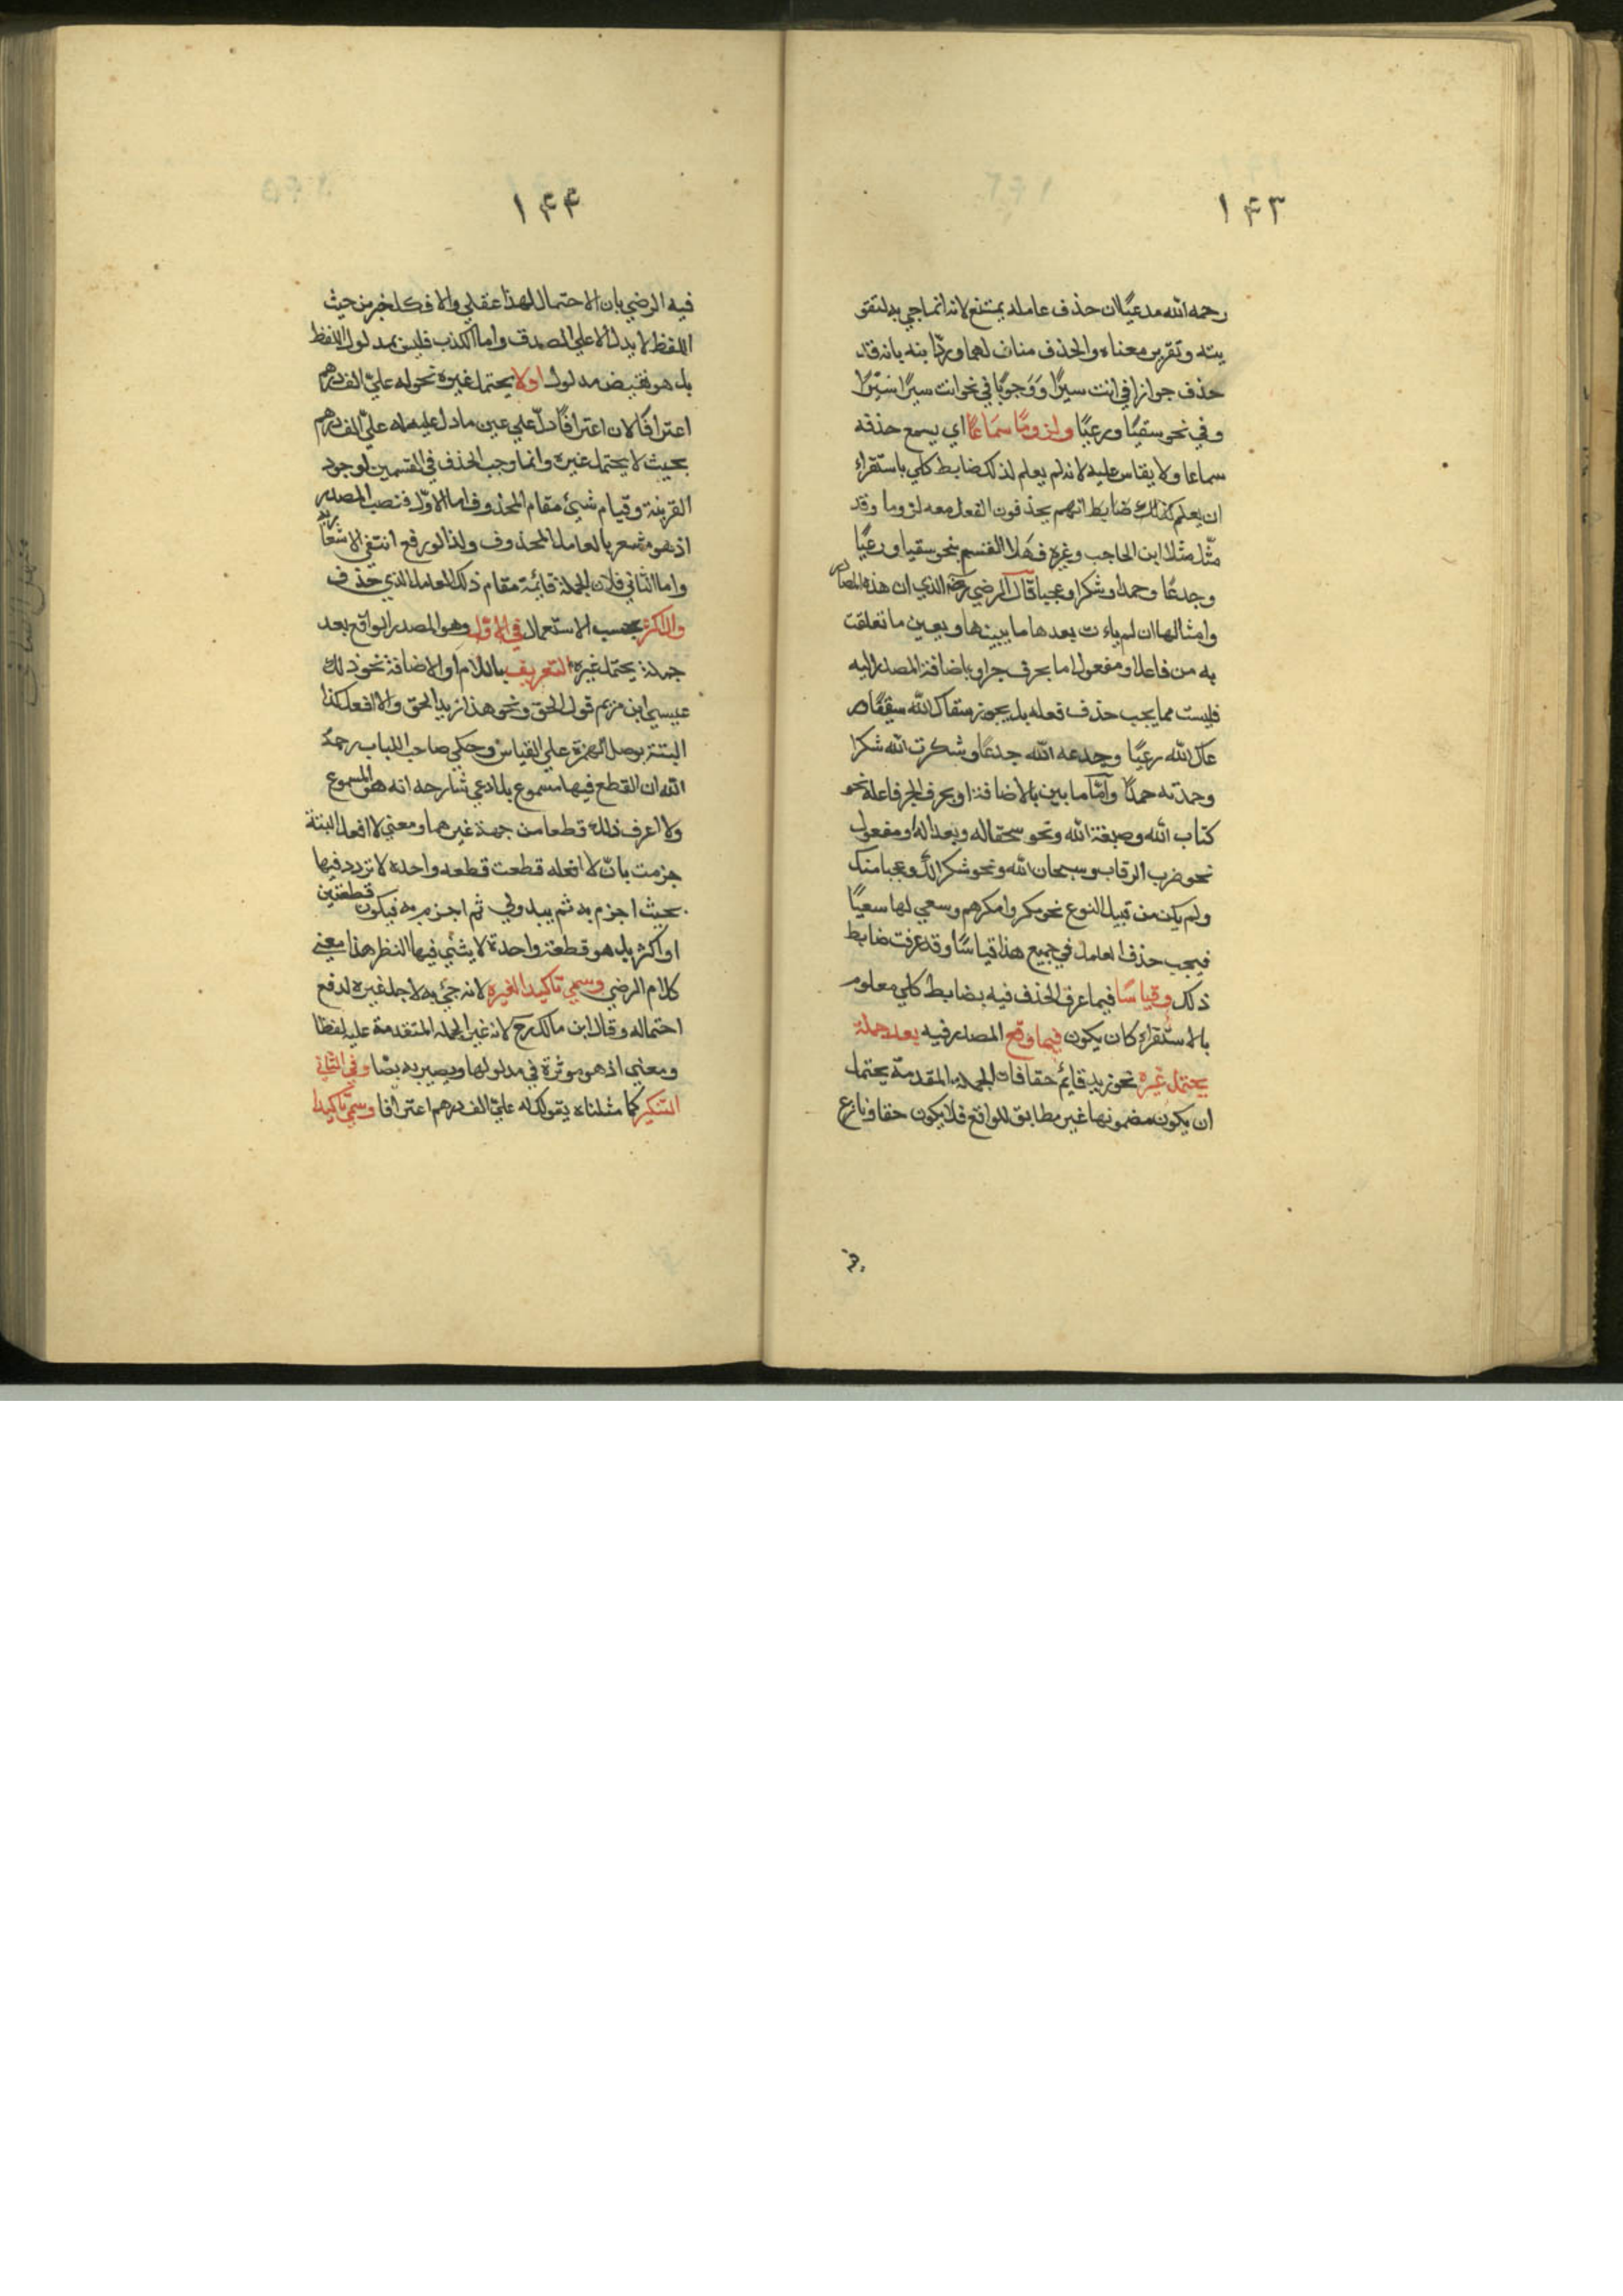 ۱۴۳
رحمه الله مدعيًا ان حذف عامله يمتنع لانه انما جي به لتقو
يته وتقرير معناه والحذف مناف لهما وردّ ابنه بانه قد
حذف جوازا في انت سيرًا ووجوبًا في نحو انت سيرًا سيرًا
وفي نحو سقيًا ورعيًا ولزومًا سماعًا اي يسمع حذفه
سماعا ولا يقاس عليه لانه لم يعلم لذلك ضابط كلي باستقراء
ان يعلم كذلك ضابط انهم يحذفون الفعل معه لزوما وقد
مثّل مثلا ابن الحاجب وغيره فهلا القسم بنحو سقيا ورعيًا
وجدعًا وحمدا وشكرا وعجبا قال الرضي رضه الذي ان هذه المصادر
وامثالها ان لم يات بعدها ما يبينها ويعين ما تعلقت
به من فاعل او مفعول اما بحرف جر او باضافة المصدر اليه
فليست مما يجب حذف فعله بل يجوز سقاك الله سقيًا ور
عاك الله رعيًا وجدعه الله جدعًا وشكرت الله شكرًا
وحمدته حمدًا وامّا ما بين بالاضافة او بحرف الجر فاعله نحو
كتاب الله وصبغة الله ونحو سحقا له وبعدا له او مفعول
نحو ضرب الرقاب وسبحان الله ونحو شكرا لك وعجبا منك
ولم يكن من قبيل النوع نحو مكروا مكرهم وسعي لها سعيًا
فيجب حذف العامل في جميع هذا قياسًا وقد عرفت ضابط
ذلك وقياسًا فيما عرف الحذف فيه بضابط كلي معلوم
بالاستقراء كان يكون فيما وقع المصدر فيه بعد جملة
يحتمل غيره نحو زيد قايم حقا فان الجملة المقدمة يحتمل
ان يكون مضمونها غير مطابق للواقع فلا يكون حقا ونازع
فيه
۱۴۴
فيه الرضي بان الاحتمال لهذا عقلي والا فكل خبر من حيث
اللفظ لا يدل الا علي الصدق واما الكذب فليس بمدلول اللفظ
بل هو نقيض مدلوله اولا يحتمل غيره نحو له عليّ الف درهم
اعترافًا لان اعترافًا دلّ علي عين ما دل عليه له عليّ الف درهم
بحيث لا يحتمل غيره وانما وجب الحذف في القسمين لوجود
القرينة وقيام شيئ مقام المحذوف اما الاوّل فنصب المصدر
اذ هو مشعر بالعامل المحذوف ولذا لو رفع انتفي الاشعار به
واما الثاني فلان الجملة قائمة مقام ذلك العامل الذي حذف
والاكثر بحسب الاستعمال في الاوّل وهو المصدر الواقع بعد
جملة يحتمل غيره التعريف باللام او الاضافة نحو ذلك
عيسي ابن مريم قول الحق ونحو هذا زيد الحق والا افعل كذا
البتة بوصل الهمزة علي القياس وحكي صاحب اللباب رحمهُ
الله ان القطع فيها مسموع بل ادعي شارحه انه هو المسموع
ولا اعرف ذلك قطعا من جهة غيرهما ومعني لا افعل البتة
جزمت بان لا افعله قطعت قطعه واحدة لا تردد فيها
بحيث اجزم به ثم يبدو لي ثم اجزم به فيكون قطعتين
او اكثر بل هو قطعة واحدة لا يثني فيها النظر هذا معني
كلام الرضي وسمي تاكيدا لغيره لانه جئ به لاجل غيره لدفع
احتماله وقال ابن مالك رح لانه غير الجمله المتقدمة عليه لفظا
ومعني اذ هو موثرة في مدلولها ويصير به نصّا وفي الثاني
التنكير كما مثلناه بقولك له عليّ الف درهم اعترافا وسمّي تاكيدا